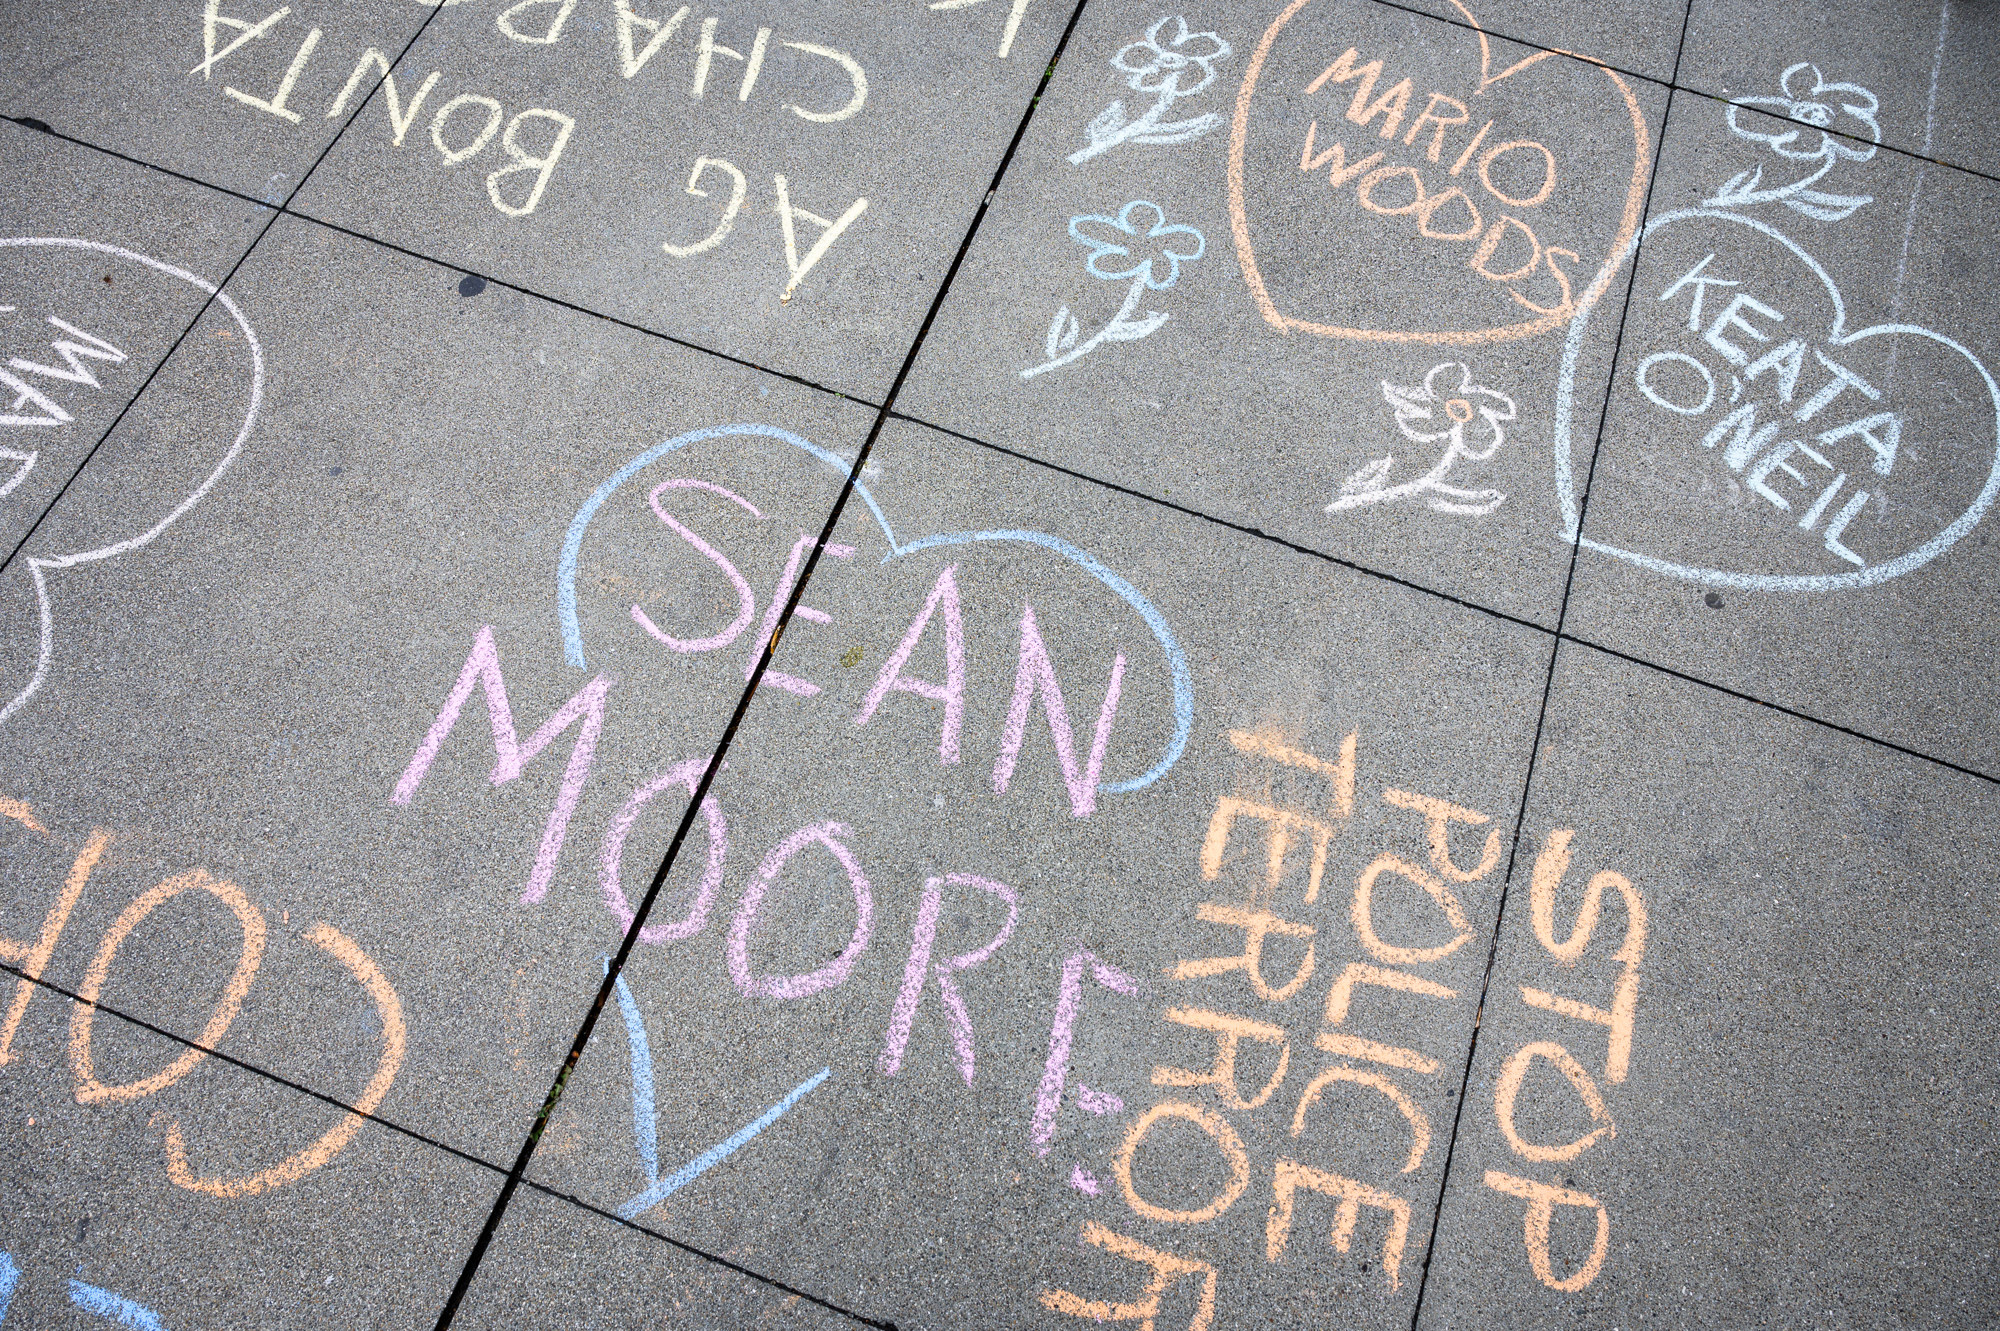 AG BONTA
CHAR
MARIO
WOODS
KEATA
O'NEIL
MAR
SEAN
MOORE
STOP
POLICE
TERROR